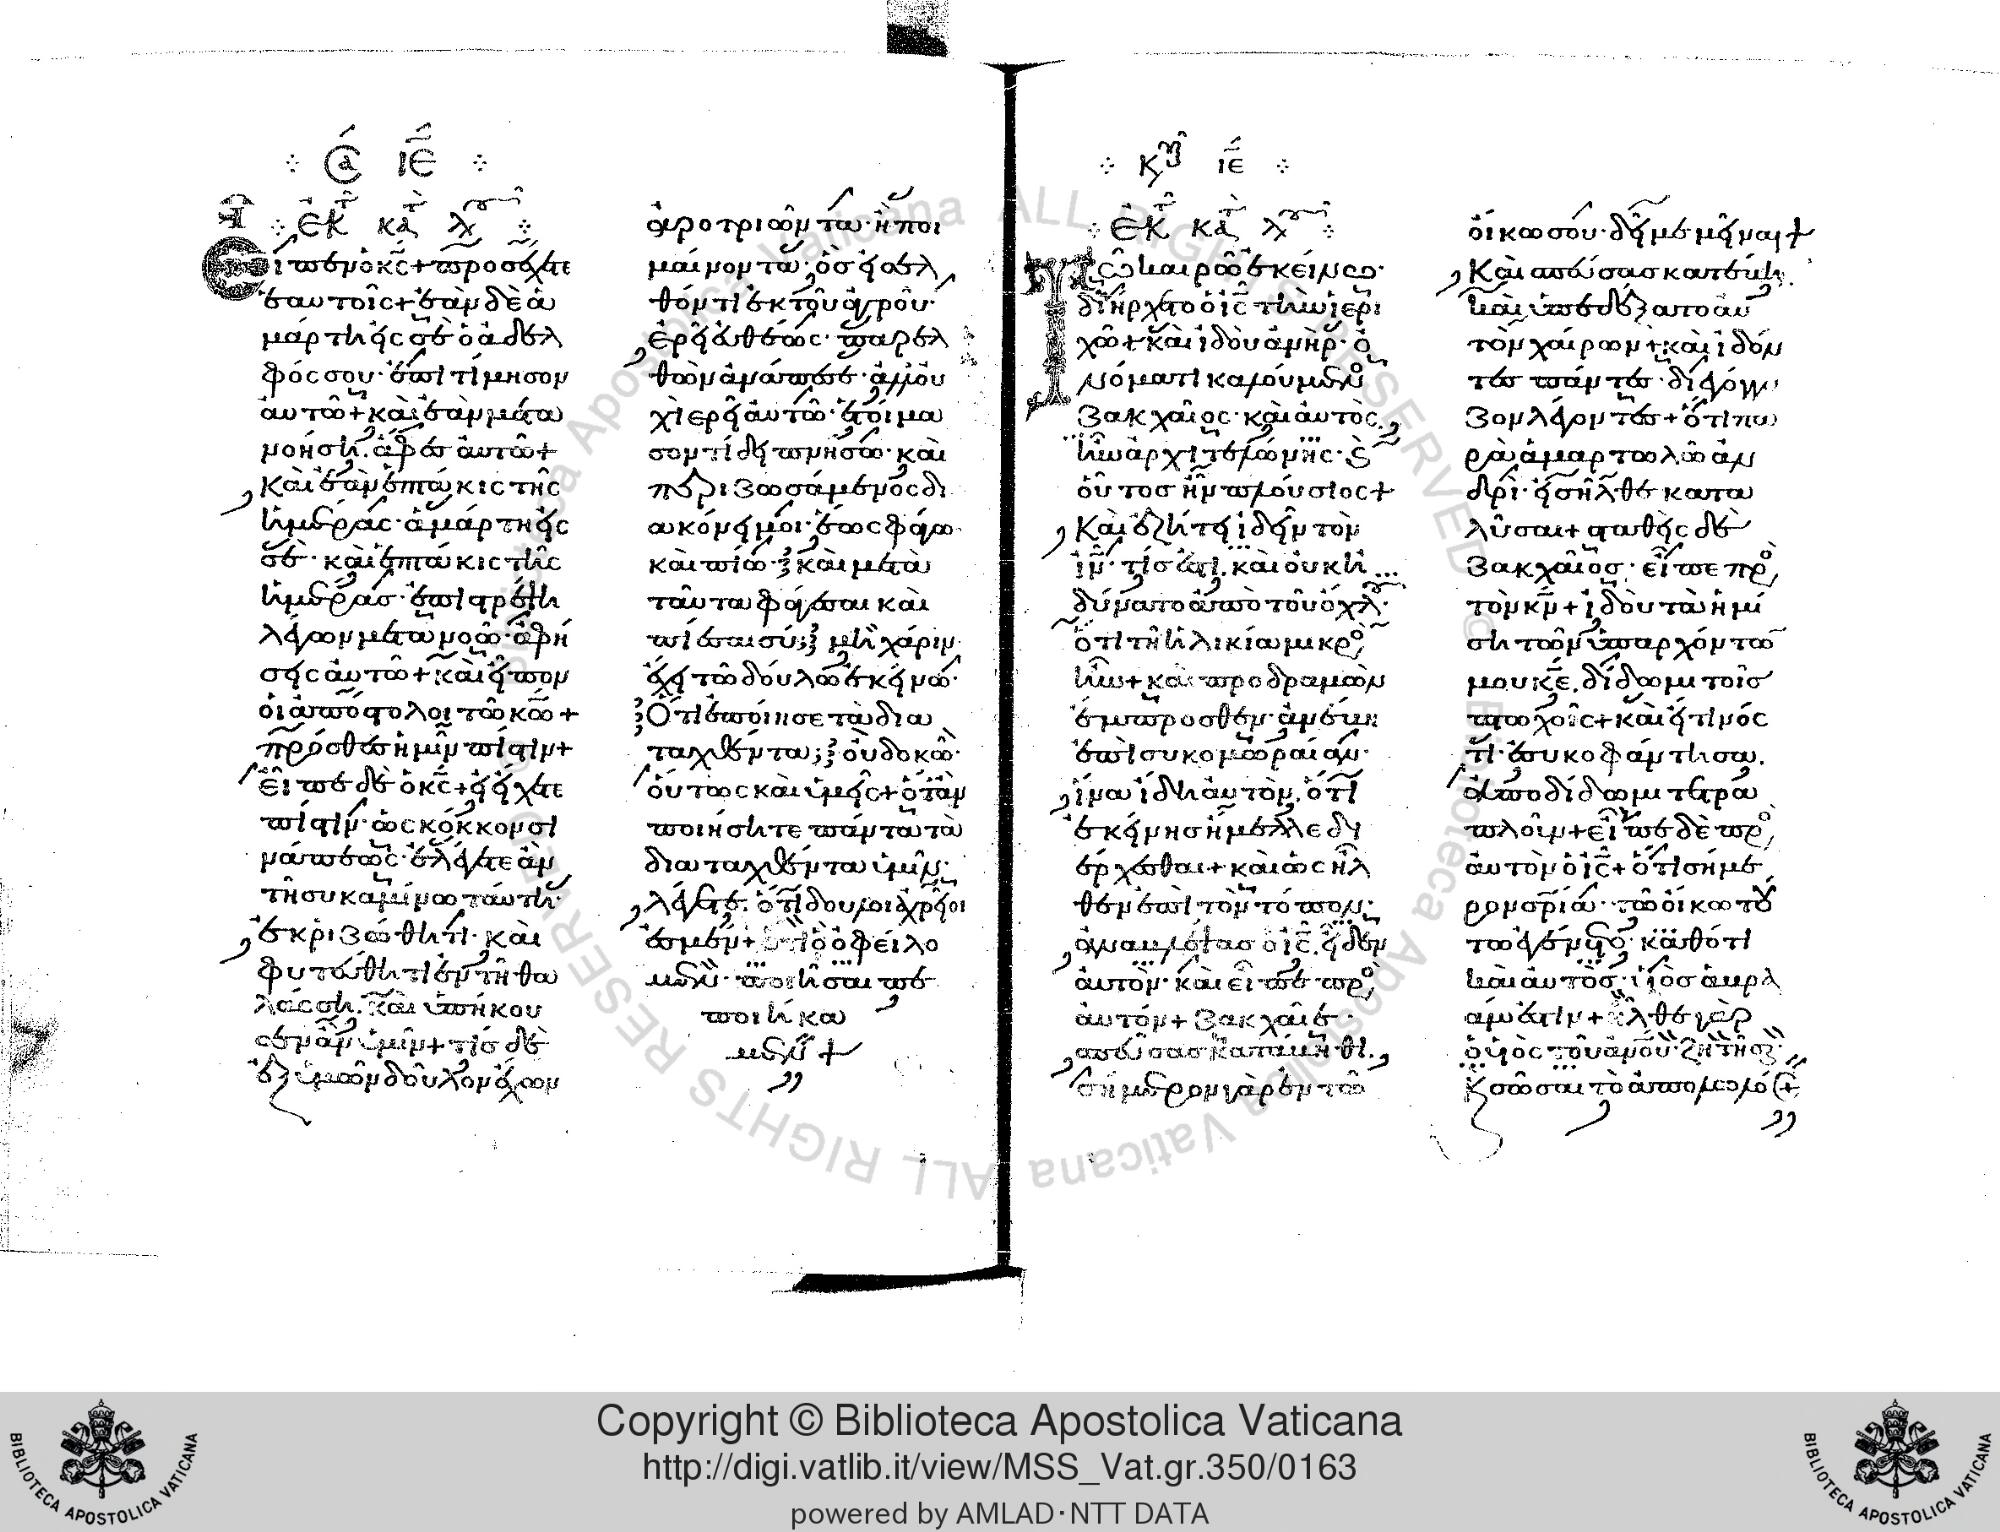 Σά ΙΕ
ἐκ τ κατ λουκ
Εἶπεν ὁ κς + προσέχετε
ἑαυτοῖς + ἐὰν δὲ ἁ
μάρτη εἰς σὲ ὁ ἀδελ
φός σου · ἐπιτίμησον
αὐτῶ + καὶ ἐὰν μετα
νοήση · ἄφες αὐτῶ +
Καὶ ἐὰν ἑπτάκις τῆς
ἡμέρας · ἁμάρτη εἰς
σὲ · καὶ ἑπτάκις τῆς
ἡμέρας · ἐπιστρέψη
λέγων μετανοῶ · ἀφή
σεις αὐτῶ + καὶ εἶπον
οἱ ἀπόστολοι τῶ κῶ +
πρόσθες ἡμῖν πίστιν +
εἶπε δὲ ὁ κς + εἰ ἔχετε
πίστιν · ὡς κόκκον σι
νάπεως · ἐλέγετε ἂν
τῆ συκαμίνω ταύτη ·
ἐκριζώθητι · καὶ
φυτεύθητι ἐν τῆ θα
λάσση · καὶ ὑπήκου
σεν ἂν ὑμῖν + τίς δὲ
ἐξ ὑμῶν δοῦλον ἔχων
ἀροτριῶντα · ἢ ποι
μαίνοντα · ὃς εἰσελ
θόντι ἐκ τοῦ ἀγροῦ ·
ἐρεῖ εὐθέως · παρελ
θὼν ἀνάπεσε · ἀλλ οὐ
χὶ ἐρεῖ αὐτῶ · ἑτοίμα
σον τί δειπνήσω · καὶ
περιζωσάμενος δι
ακόνει μοι · ἕως φάγω
καὶ πίω · καὶ μετὰ
ταῦτα φάγεσαι καὶ
πίεσαι σύ; μὴ χάριν
ἔχει τῶ δούλω ἐκείνω ·
Ὅτι ἐποίησε τὰ δια
ταχθέντα; οὐ δοκῶ ·
οὕτως καὶ ὑμεῖς + ὅταν
ποιήσητε πάντα τὰ
διαταχθέντα ὑμῖν ·
λέγετε · ὅτι δοῦλοι ἀχρεῖοι
ἐσμέν + ὅτι ὃ ὀφείλο
μεν · ποιῆσαι πε
ποιήκα
μεν +
Κυ ΙΕ
ἐκ τ κατ λουκ
Τῶ καιρῶ ἐκείνω ·
διήρχετο ὁ ις τὴν ἱερι
χώ + καὶ ἰδοὺ ἀνὴρ · ὀ
νόματι καλούμενο
Ζακχαῖος · καὶ αὐτὸς
ἦν ἀρχιτελώνης · κ
οὗτος ἦν πλούσιος +
Καὶ ἐζήτει ἰδεῖν τὸν
ιν · τίς ἐστι · καὶ οὐκ ἠ
δύνατο ἀπὸ τοῦ ὄχλ ·
Ὅτι τῆ ἡλικία μικρὸ
ἦν + καὶ προδραμὼν
ἔμπροσθεν · ἀνέβη
ἐπὶ συκομωραίαν ·
ἵνα ἴδη αὐτὸν · ὅτι
ἐκείνης ἤμελλε δι
έρχεσθαι + καὶ ὡς ἦλ
θεν ἐπὶ τὸν τόπον ·
ἀναβλέψας ὁ ις · εἶδεν
αὐτὸν · καὶ εἶπε πρὸ
αὐτόν + Ζακχαῖε ·
σπεύσας κατάβηθι ·
σήμερον γὰρ ἐν τῶ
οἴκω σου · δεῖ με μεῖναι +
Καὶ σπεύσας κατέβη ·
καὶ ὑπεδέξατο αὐ
τὸν χαίρων + καὶ ἰδόν
τες πάντες · διεγόγγυ
ζον λέγοντες + ὅτι πα
ρὰ ἁμαρτωλῶ ἀν
δρὶ · εἰσῆλθε κατα
λῦσαι + σταθεὶς δὲ
Ζακχαῖος · εἶπε πρὸ
τὸν κν + ἰδοὺ τὰ ἡμί
ση τῶν ὑπαρχόντω
μου κε · δίδωμι τοῖς
πτωχοῖς + καὶ εἴ τινός
τι ἐσυκοφάντησα ·
ἀποδίδωμι τετρα
πλοῦν + εἶπε δὲ πρὸ
αὐτὸν ὁ ις + ὅτι σήμε
ρον σρία · τῶ οἴκω του
τω ἐγένετο · καθότι
καὶ αὐτὸς · υἱὸς ἀβρα
άμ ἐστιν + ἦλθε γὰρ
ὁ υἱὸς τοῦ ἀνου · ζητῆσ
κ σῶσαι τὸ ἀπολωλό +
Copyright © Biblioteca Apostolica Vaticana
http://digi.vatlib.it/view/MSS_Vat.gr.350/0163
powered by AMLAD·NTT DATA
BIBLIOTECA APOSTOLICA VATICANA
BIBLIOTECA APOSTOLICA VATICANA